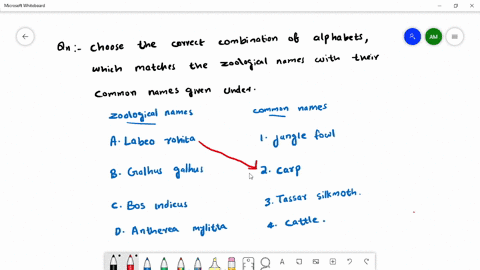 Microsoft Whiteboard
AM
Qn:- Choose the correct combination of alphabets,
which matches the zoological names with their
common names given under.
Zoological names
common names
A. Labeo rohita
1. Jungle fowl
B. Galhus galhus
2. carp
C. Bos indicus
3. Tassar silkmoth.
D. Antherea mylitta
4. cattle.